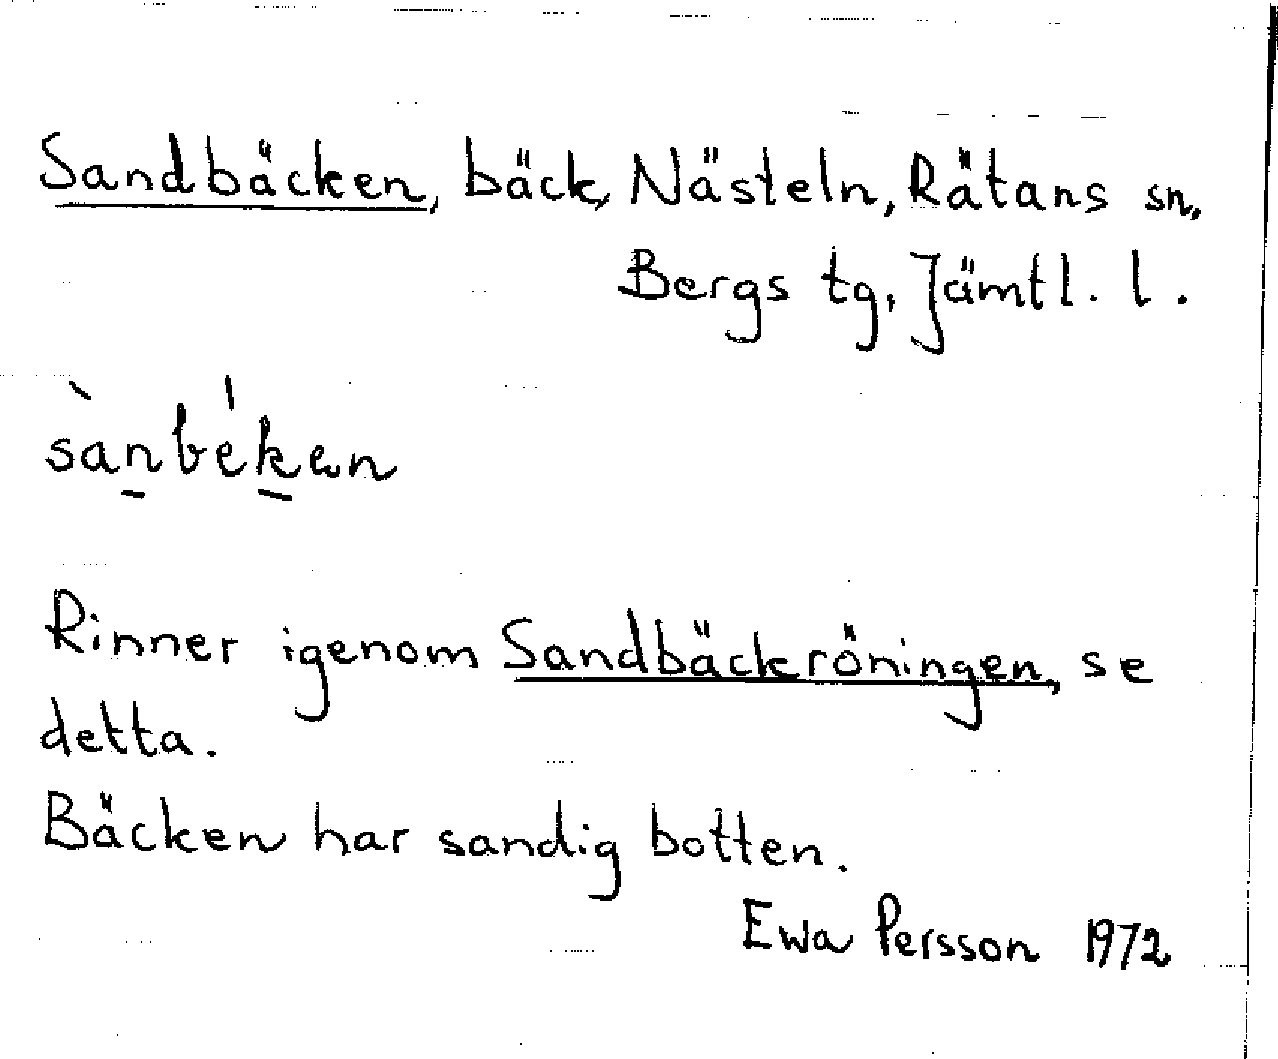 Sandbäcken, bäck, Nästeln, Rätans sn,
Bergs tg, Jämtl. l.
sànbékan
Rinner igenom Sandbäckröningen, se
detta.
Bäcken har sandig botten.
Ewa Persson 1972